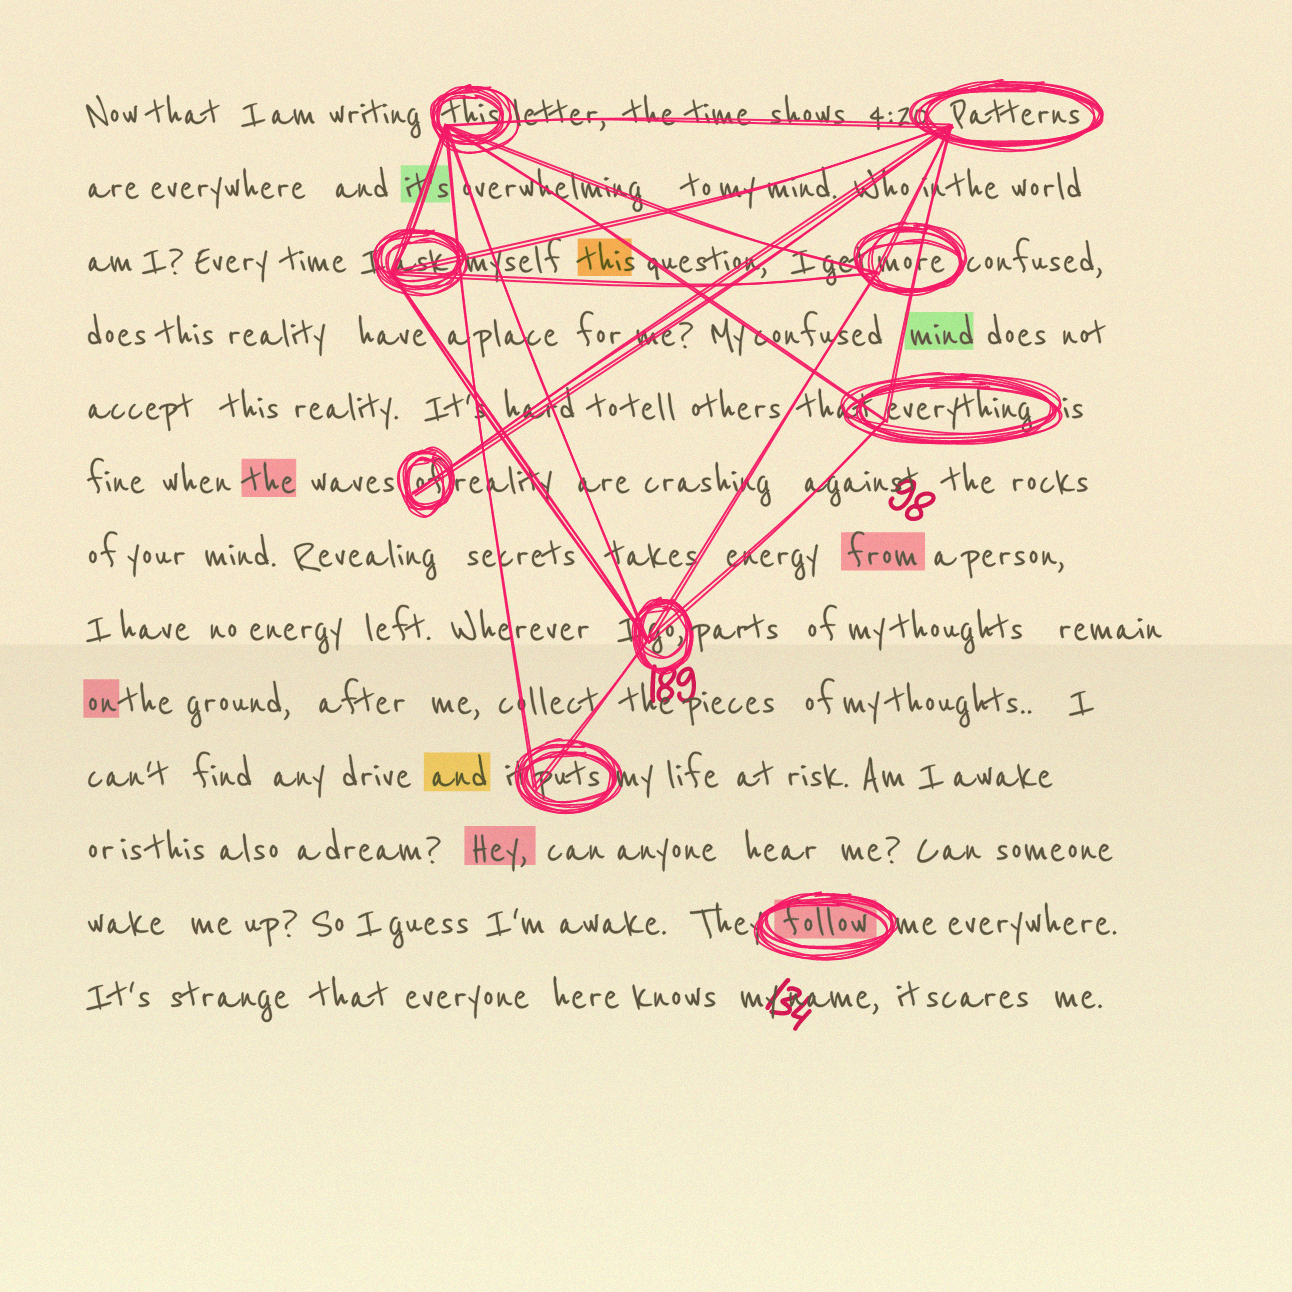 Now that I am writing this letter, the time shows 4:20 Patterns
are everywhere and it's overwhelming to my mind. Who in the world
am I? Every time I ask myself this question, I get more confused,
does this reality have a place for me? My confused mind does not
accept this reality. It's hard to tell others that everything is
fine when the waves of reality are crashing against the rocks
98
of your mind. Revealing secrets takes energy from a person,
I have no energy left. Wherever I go, parts of my thoughts remain
189
on the ground, after me, collect the pieces of my thoughts.. I
can't find any drive and it puts my life at risk. Am I awake
or is this also a dream? Hey, can anyone hear me? Can someone
wake me up? So I guess I'm awake. They follow me everywhere.
It's strange that everyone here knows my name, it scares me.
134